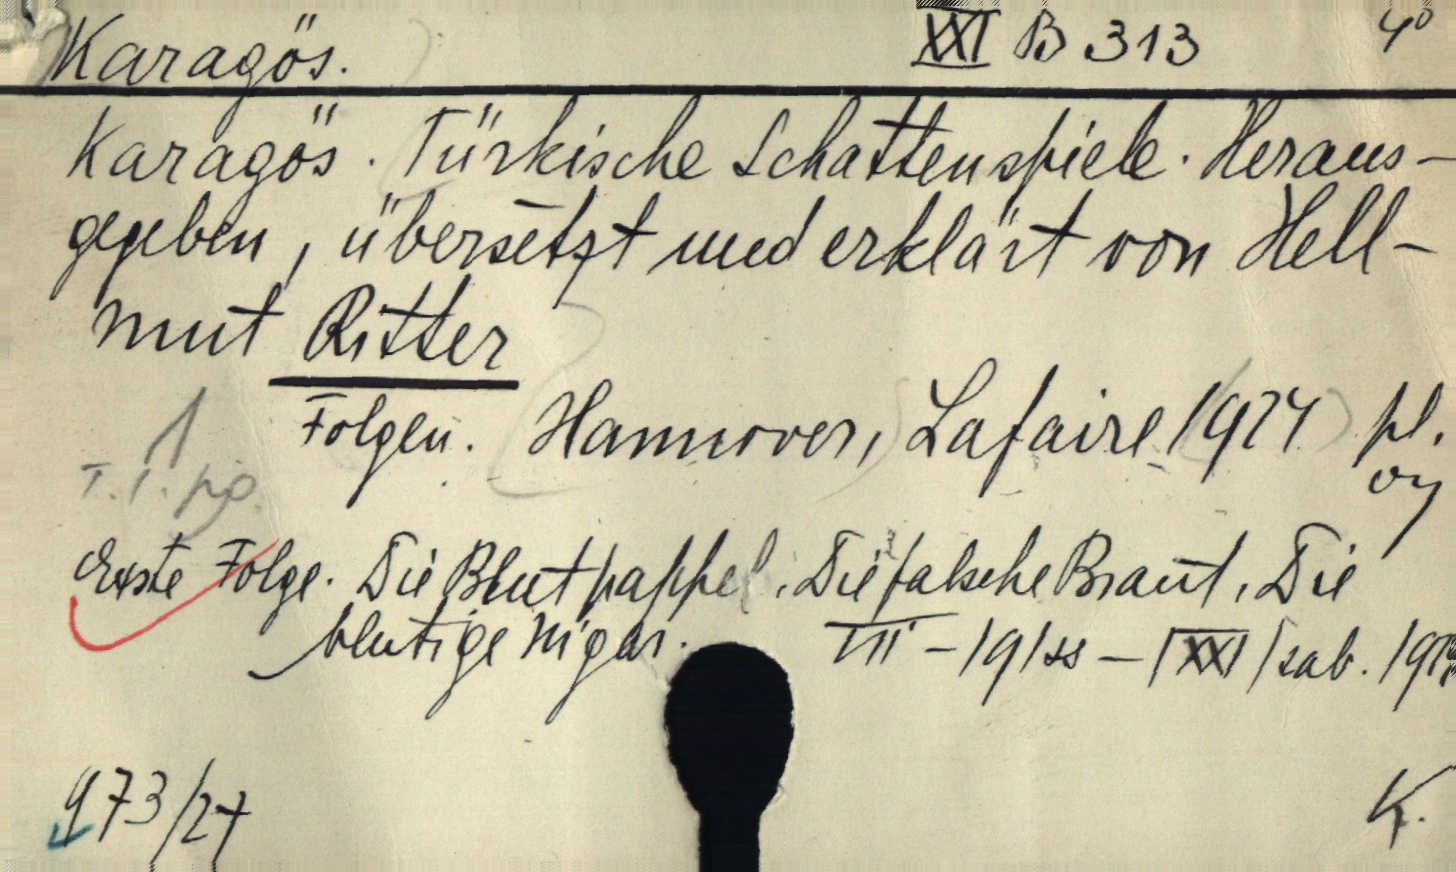 Karagös. XXI B 313 4°
Karagös. Türkische Schattenspiele. Heraus-
gegeben, übersetzt und erklärt von Hell-
mut Ritter
1 Folgen. Hannover, Lafaire 1924 pl.
T. 1. pg.
Erste Folge. Die Blutpappel. Die falsche Braut. Die
blutige Nigâr. VII - 191 ss - XXI sab. 1914
973/27 K.